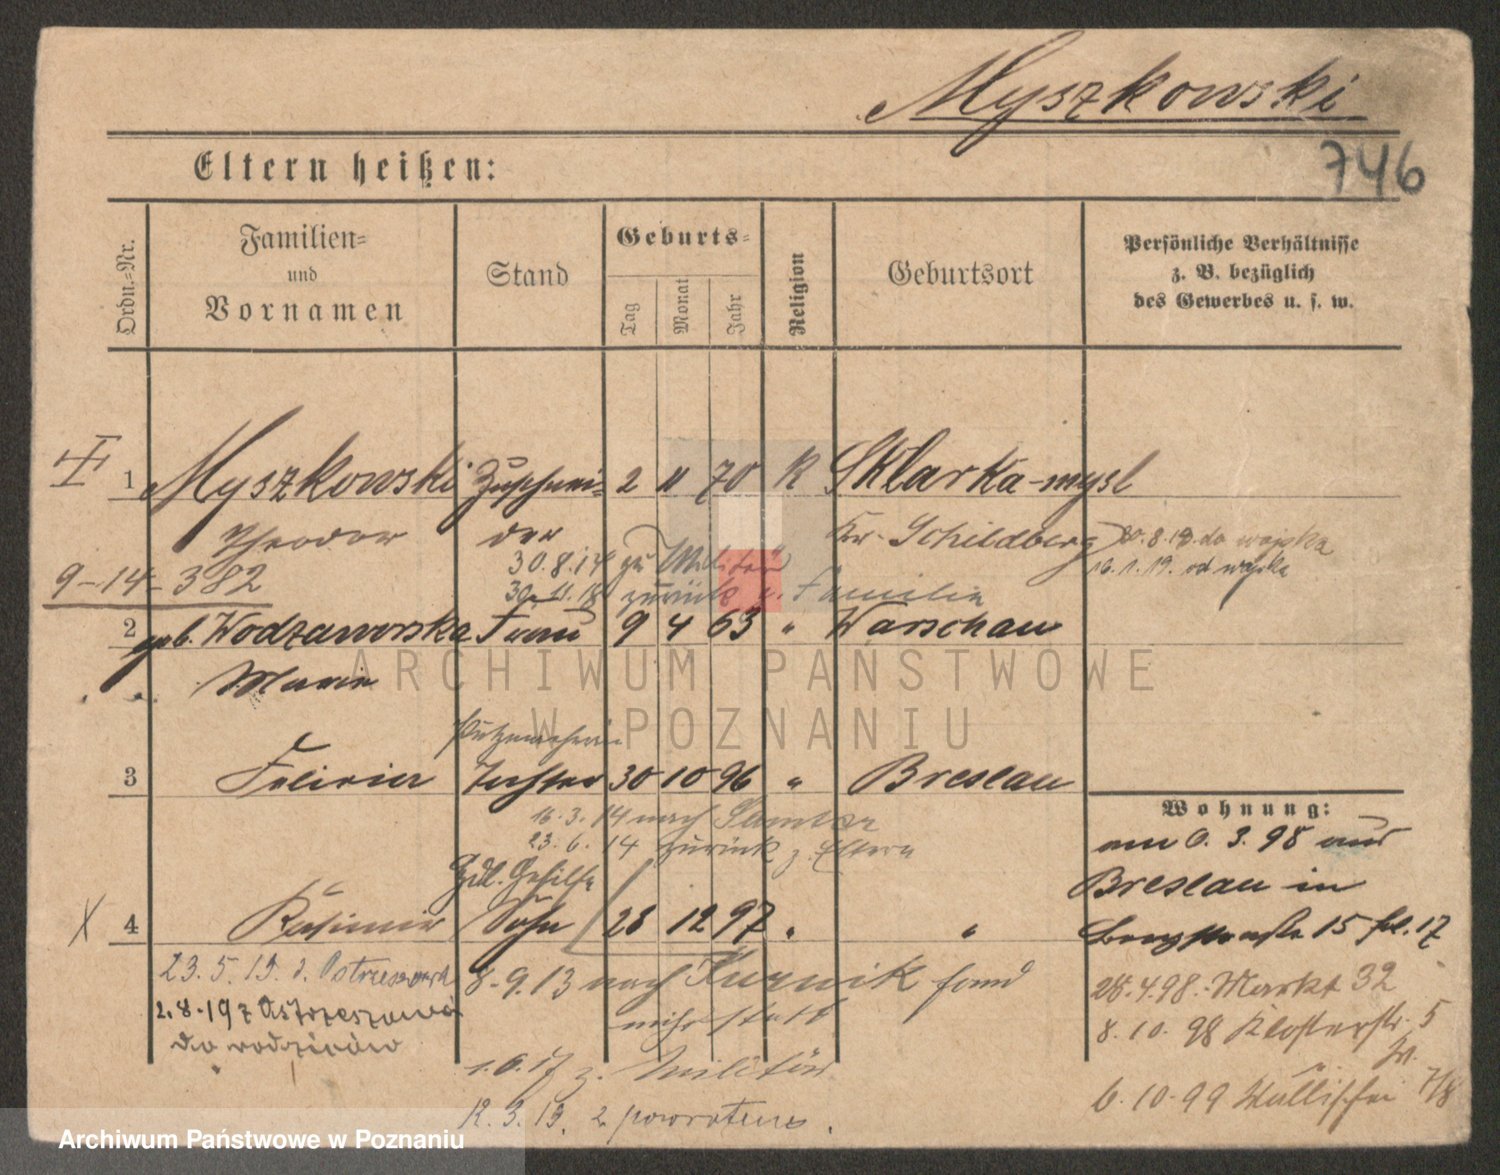 Myszkowski
746
Eltern heißen:
Ordn.-Nr.
Familien- und Vornamen
Stand
Geburts-
Tag
Monat
Jahr
Religion
Geburtsort
Persönliche Verhältnisse
z. B. bezüglich
des Gewerbes u. s. w.
1 Myszkowski Zuschnei- 2 11 70 K Sklarka-mysl
Theodor der Kr. Schildberg 30.8.19. do wojska
9-14-382 30.8.14 zu Militär 16.1.19. od wojska
30.11.18 zurück z. Familie
2 geb. Wodzaworska Frau 9 4 63 " Warschau
Marie
ARCHIWUM PAŃSTWOWE
W POZNANIU
Putzmacherin
3 Felicia Tochter 30 10 96 " Breslau
16.3.14 nach Samter
23.6.14 zurück z. Eltern
Hdl. Gehilfe
4 Kasimir Sohn 28 12 97 " "
23.5.19. d. Ostrzeszowa 8.9.13 nach Kurnik fand
2.8.19 z Ostrzeszowa nicht statt
do rodziców
1.6.17 z. Militär
12.3.19. z powrotem.
Wohnung:
am 6.3.98 aus
Breslau in
Bergstraße 15 frl. 17
28.4.98. Markt 32
8.10.98 Klosterstr. 5
6.10.99 Wallischei 7/8
Archiwum Państwowe w Poznaniu